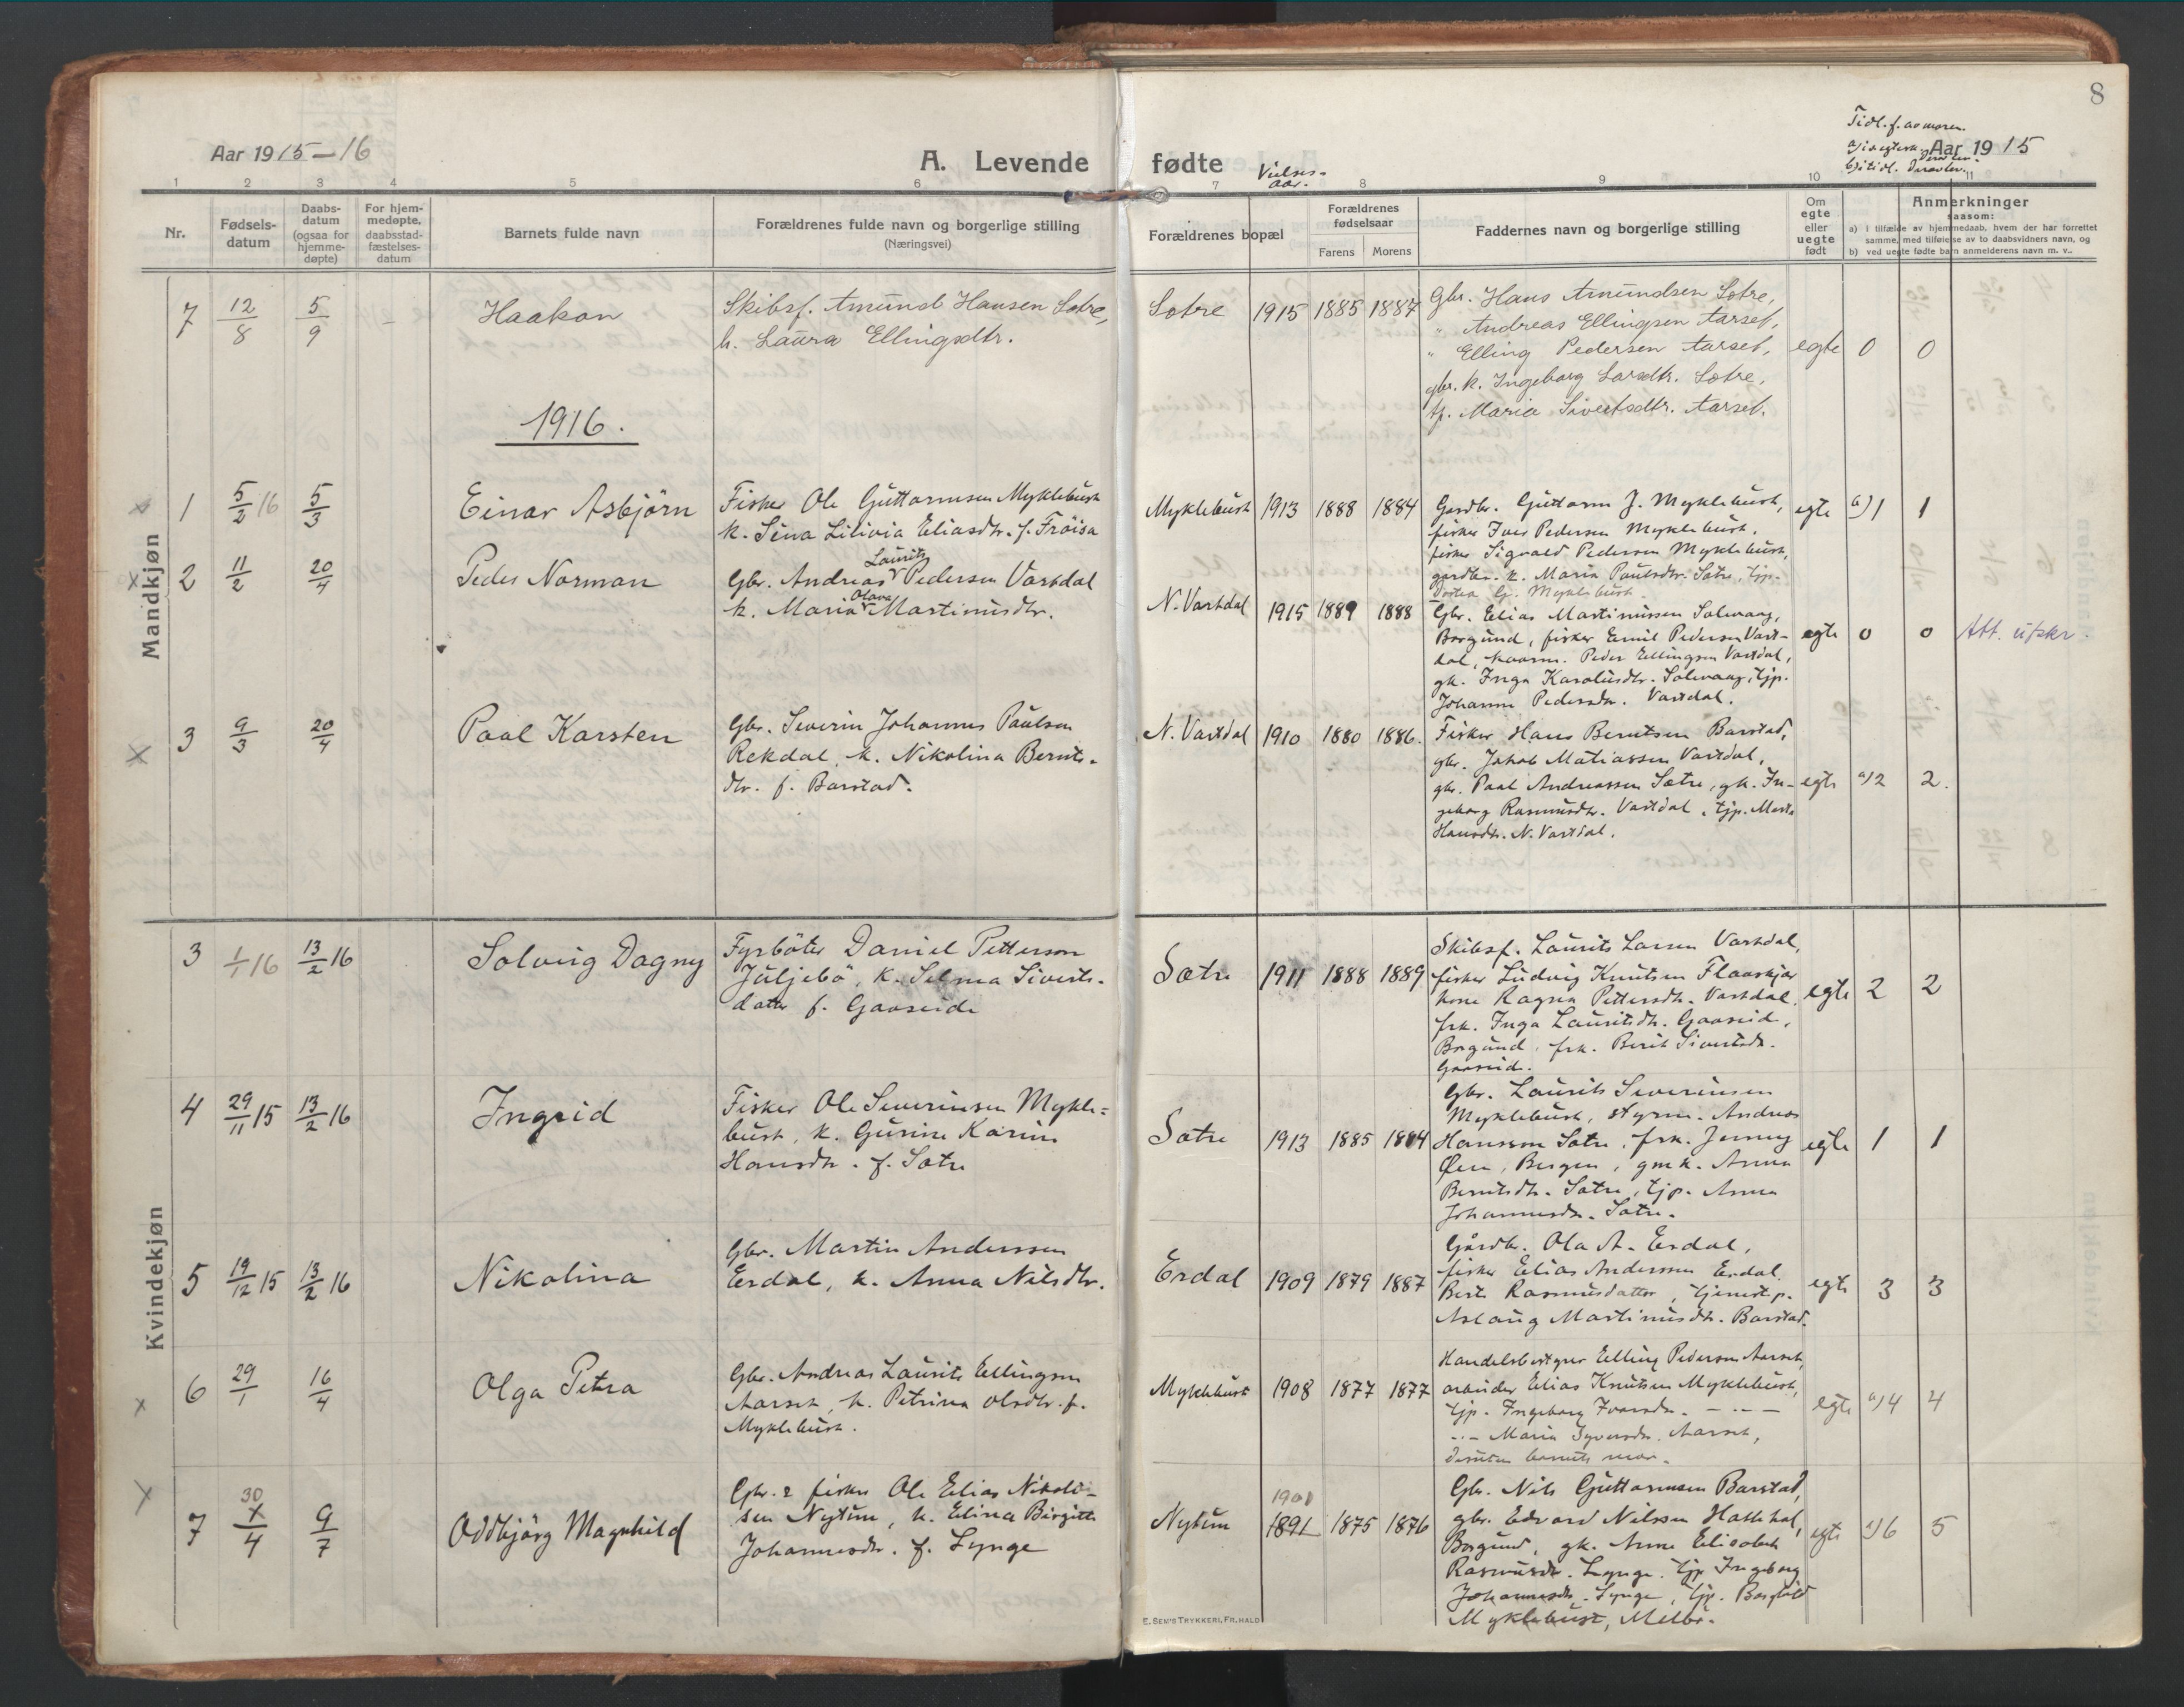 8
Aar 1915–16
A. Levende fødte
Tidl. f. av moren.
a) i egtesk.
b) tidl.
Aar 1915
Vielses-
aar.
1 2 3 4 5 6 7 8 9 10 11
Nr.
Fødsels-
datum
Daabs-
datum
(ogsaa for
hjemme-
døpte)
For hjem-
medøpte,
daabsstad-
fæstelses-
datum
Barnets fulde navn
Forældrenes fulde navn og borgerlige stilling
(Næringsvei)
Forældrenes bopæl
Forældrenes
fødselsaar
Farens Morens
Faddernes navn og borgerlige stilling
Om
egte
eller
uegte
født
Anmerkninger
saasom:
a) i tilfælde av hjemmedaab, hvem der har forrettet
samme, med tilføielse av to daabsvidners navn, og
b) ved uegte fødte barn anmelderens navn m. v..
Mandkjøn
7 12/8 5/9 – Haakon
Skibsf. Amund Hansen Sætre,
h. Laura Ellingsdtr.
Sætre 1915 1885 1887
Gbr. Hans Amundsen Sætre,
" Andreas Ellingsen Aarset,
" Elling Pedersen Aarset,
gbr. k. Ingeborg Larsdtr. Sætre,
tj. Maria Sivertsdtr. Aarset.
egte 0 0
1916.
x 1 5/2 16 5/3 Einar Asbjörn
Fisker Ole Guttormsen Myklebust
k. Sina Lilivia Eliasdtr. f. Fröisa
Myklebust 1913 1888 1884
Gardbr. Guttorm J. Myklebust,
fisker Iver Pedersen Myklebust,
fisker Sigvald Pedersen Myklebust,
gardbr. k. Maria Paulsdtr. Sætre, tjp.
Myklebust
egte a) 1 1
x 2 11/2 20/4 Peder Norman
Laurits
Gbr. Andreas Pedersen Vartdal
Olava
k. Maria Martinusdtr.
N. Vartdal 1915 1889 1888
Gbr. Elias Martinussen Solevaag,
Borgund, fisker Emil Pedersen Vart-
dal, Peder Ellingsen Vartdal,
gk. Inga Karolusdtr. Solevaag, tjp.
Johanne Pedersdtr. Vartdal.
egte 0 0 Att. utskr.
x 3 9/3 20/4 Paal Karsten
Gbr. Severin Johannes Paulsen
Rekdal, k. Nikolina Bernts-
dtr. f. Barstad.
N. Vartdal 1910 1880 1886.
Fisker Hans Berntsen Barstad,
gbr. Jakob Matiassen Vartdal,
gbr. Paal Andreassen Sætre, gk. In-
geborg Rasmusdtr. Vartdal, tjp. Marta
Hansdtr. N. Vartdal.
egte a) 2 2.
Kvindekjøn
3 1/1 16 13/2 16 Solveig Dagny
Fyrböter Daniel Petterson
Juljebö, k. Selma Siverts-
datter f. Gaaseide
Sætre 1911 1888 1889
Skibsf. Laurits Larsen Vartdal,
fisker Ludvig Knutsen Flaaskjær
kone Ragna Pettersdtr. Vartdal,
frk. Inga Lauritsdtr. Gaaseid,
Borgund, frk. Berit Sivertsdtr.
Gaaseid.
egte 2 2
4 29/11 15 13/2 16 Ingrid
Fisker Ole Severinsen Mykle-
bust, k. Gurine Karine
Hansdtr. f. Sætre
Sætre 1913 1885 1884
Gbr. Laurits Severinsen
Myklebust, styrm. Andreas
Hansson Sætre, frk. Jenny
Øen, Bergen, gmk. Anna
Berntsdtr. Sætre, tjp. Anna
Johannesdtr. Sætre.
egte 1 1
5 19/12 15 13/2 16 Nikolina
Gbr. Martin Anderssen
Erdal, k. Anna Nilsdtr.
Erdal 1909 1879 1887
Gårdbr. Ola A. Erdal,
fisker Elias Anderssen Erdal,
Berte Rasmusdatter, tjenestp.
Aslaug Martinusdtr. Barstad.
egte 3 3
x 6 29/1 16/4 Olga Petra
Gbr. Andreas Laurits Ellingsen
Aarset, k. Petrina Olsdtr. f.
Myklebust.
Myklebust 1908 1877 1877
Handelsbestyrer Elling Pedersen Aarset,
arbeider Elias Knutsen Myklebust,
tjp. Ingeborg Ivarsdtr. – " –
" – Maria Syversdtr. Aarset,
desuten barnets mor.
egte a) 4 4
x 7 30 x/4 9/7 Oddbjörg Magnhild
Gbr. & fisker Ole Elias Nikolai-
sen Nytun, k. Elina Birgitte
Johannesdtr. f. Lynge
Nytun 1901 1891 1875 1876
Gbr. Nils Guttormsen Barstad,
gbr. Edvard Nilssen Hatlehol,
Borgund, gk. Anne Elisabet
Rasmusdtr. Lynge, tjp. Ingeborg
Johannesdtr. Lynge, tjp. Borghild
Myklebust, Melbø.
egte a) 6 5
E. SEM'S TRYKKERI, FR.HALD